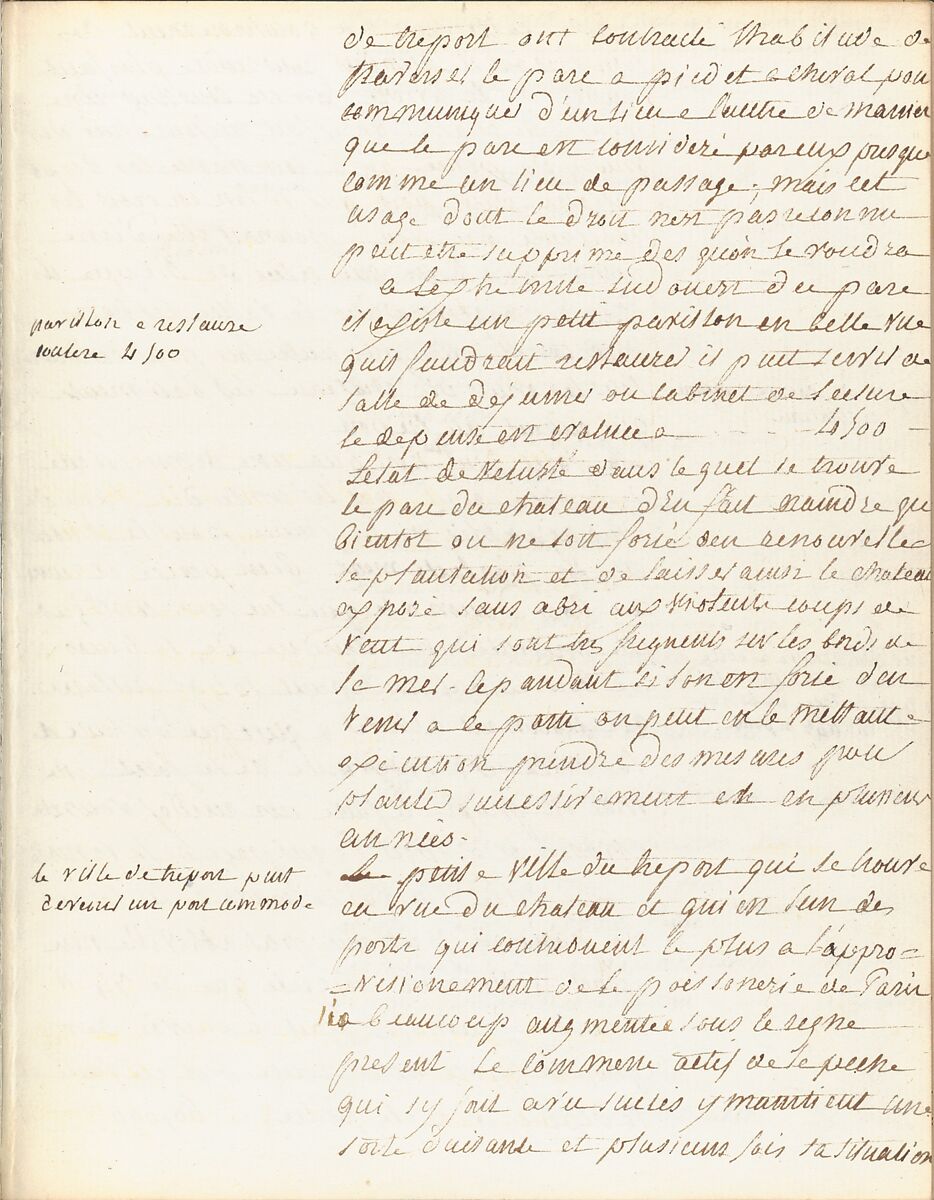 de treport ont contracté l'habitude de
traverser le parc a pied et a cheval pou
communiquer d'un lieu a l'autre de manier
que le parc est consideré par eux presque
comme un lieu de passage, mais cet
usage dont le droit n'est pas reconnu
peut etre supprimé des qu'on le voudra
a l'extremité sud ouest du parc
pavillon a restaure
il existe un petit pavillon en belle vue
4500
qu'il faudrait restaurer il peut servir de
salle de dejeuner ou cabinet de lecture
la depense est evaluee a 4500
L'etat de vetusté dans lequel se trouve
le parc du chateau d'Eu fait craindre qu
bientot on ne soit forcé d'en renouveller
la plantation et de laisser ainsi le chateau
exposé sans abri aux violents coups de
vent qui sont tres frequents sur les bords de
la mer. cependant si l'on est forcé d'en
venir a ce parti on peut en le mettant a
execution prendre des mesures pour
planter successivement et en plusieurs
années.
la ville de treport peut
la petite ville du treport qui se trouve
devenir un port commode
en vue du chateau et qui est l'un des
ports qui contribuent le plus a l'appro=
=visionement de la poissonerie de Paris
a beaucoup augmentée sous le regne
present Le commerce actif de la peche
qui s'y fait avec succes y maintient une
sorte d'aisance et plusieurs fois sa situation